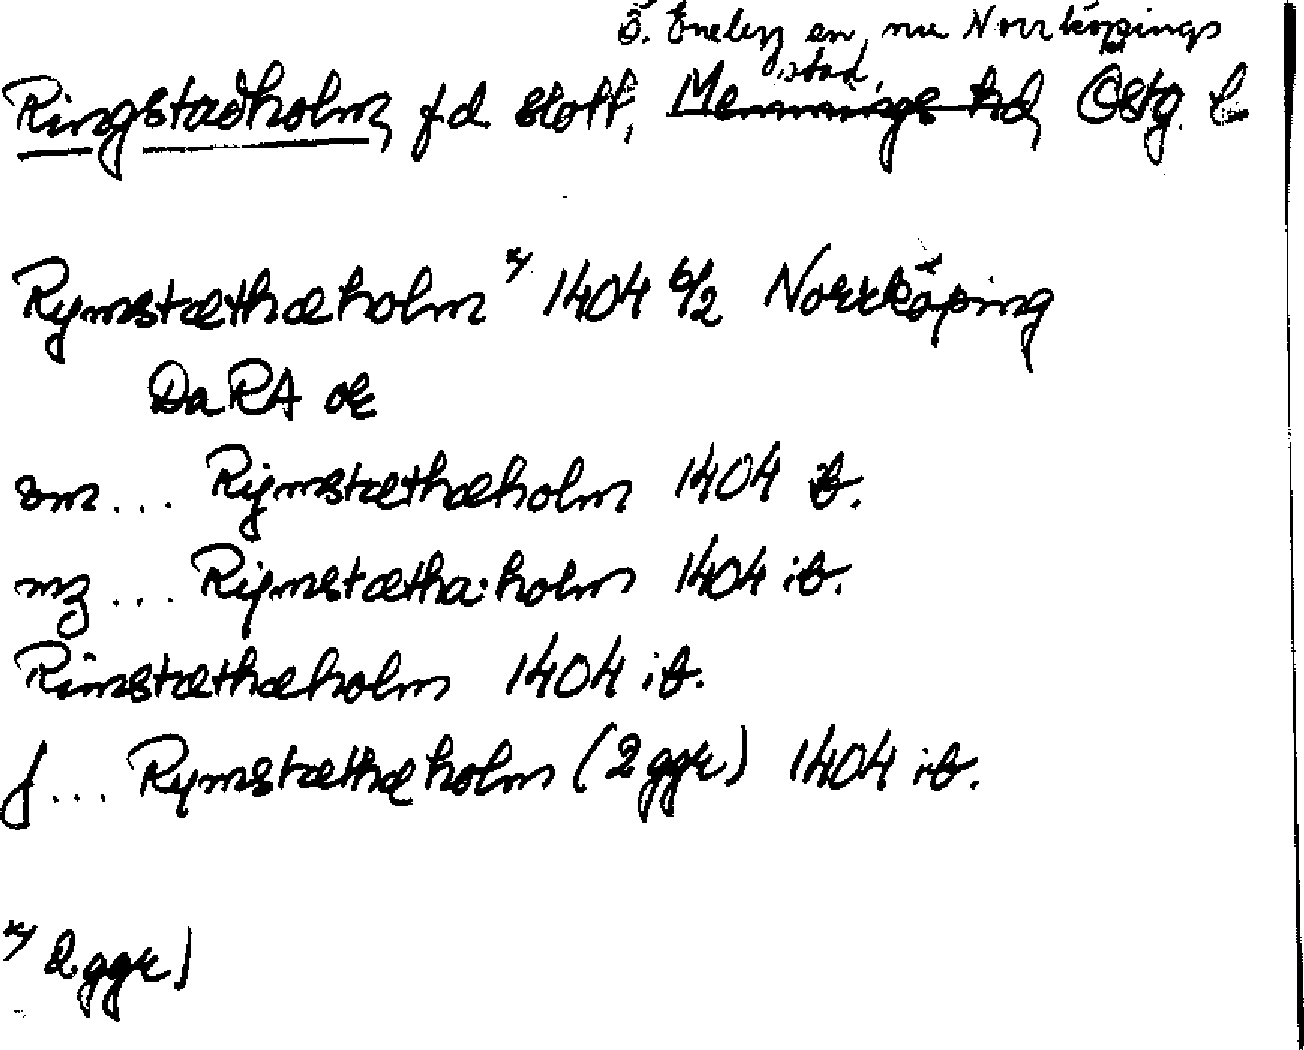 Ö. Eneby sn, nu Norrköpings
stad,
Ringstadholm, f.d. slott, Memmings hd, Östg. l
Rymstæthæholm *) 1404 6/2 Norrköping
Da RA or
sm... Rijmstæthæholm 1404 ib.
mz... Rijmstætha:holm 1404 ib.
Rimstæthæholm 1404 ib.
j... Rymstæthæholm (2 ggr) 1404 ib.
*) 2 ggr)